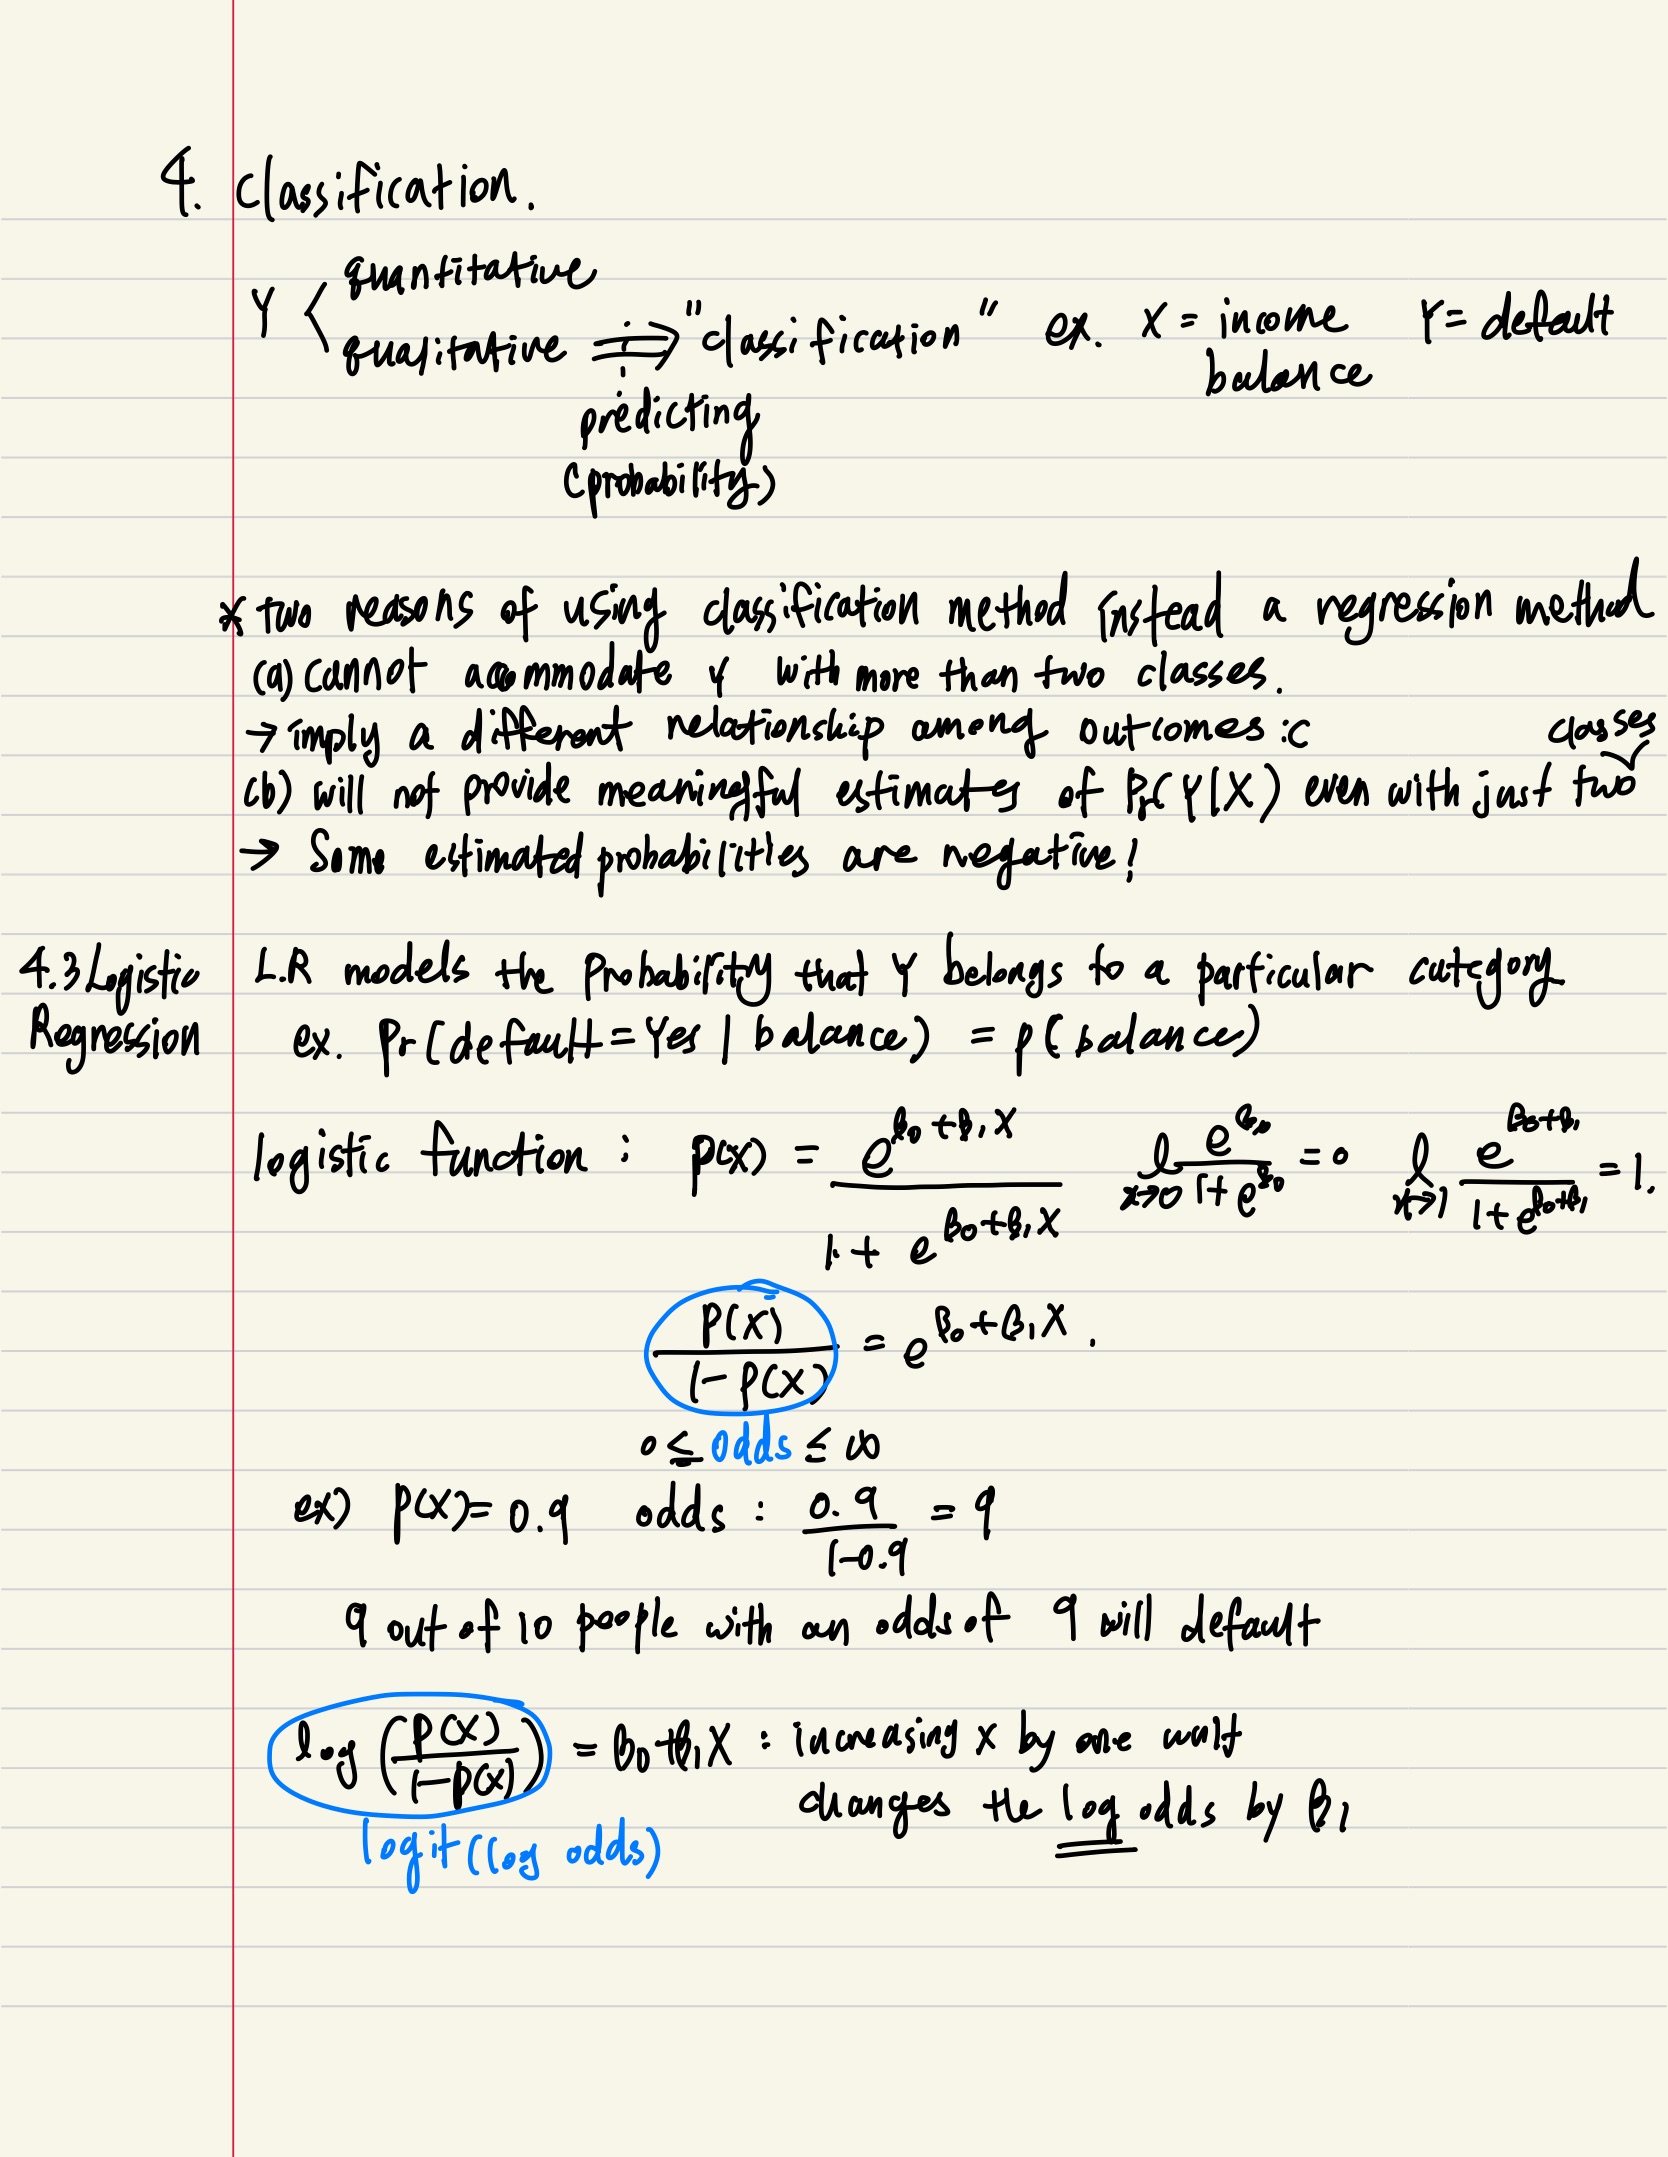 4. Classification.
Y < quantitative
qualitative ⇒ "classification" ex. X = income Y = default
balance
predicting
(probability)
* two reasons of using classification method instead a regression method
(a) cannot accommodate Y with more than two classes.
→ imply a different relationship among outcomes :c
(b) will not provide meaningful estimates of Pr(Y|X) even with just two classes
→ Some estimated probabilities are negative!
4.3 Logistic Regression
L.R models the probability that Y belongs to a particular category
ex. Pr(default = Yes | balance) = p(balance)
logistic function : p(x) = e^(β0+β1X) / (1 + e^(β0+β1X)) l x→0 e^β0 / (1 + e^β0) = 0 l x→1 e^(β0+β1) / (1 + e^(β0+β1)) = 1.
P(X) / (1 - P(X)) = e^(β0+β1X).
0 ≤ odds ≤ ∞
ex) P(X) = 0.9 odds : 0.9 / (1-0.9) = 9
9 out of 10 people with an odds of 9 will default
log (P(X) / (1-P(X))) = β0+β1X : increasing X by one unit
changes the log odds by β1
logit (log odds)